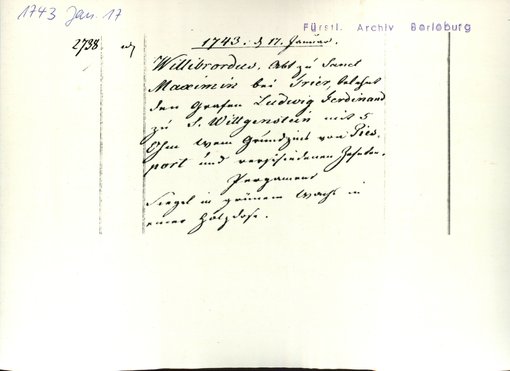 1743 Jan. 17
Fürstl. Archiv Berleburg
2738
1743. d. 17. Januar.
Willibrordus, Abt zu Sanct
Maximin bei Trier, belehnt
den Grafen Ludwig Ferdinand
zu S. Wittgenstein mit 5
Ohm Wein Grundzins von Pies-
port und verschiedenen Zehnten.
Pergament
Siegel in grünem Wachs in
einer Holzdose.